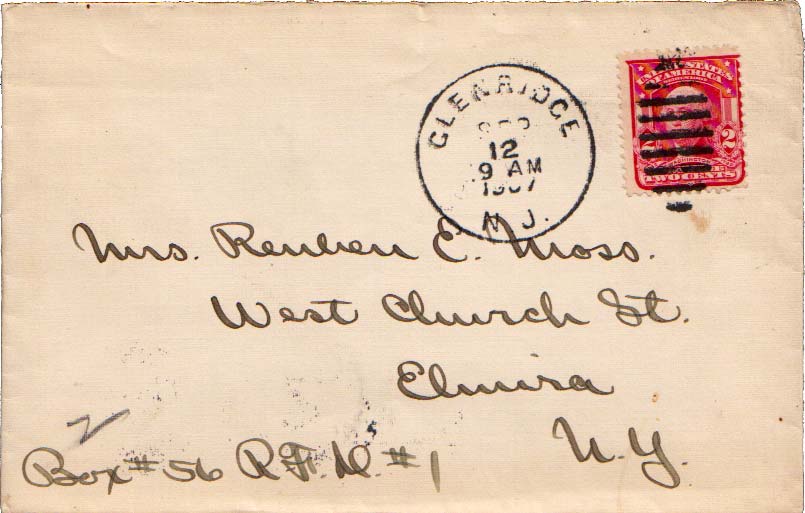 GLENRIDGE
SEP
12
9 AM
1907
N.J.
UNITED STATES
OF AMERICA
2 2
WASHINGTON
TWO CENTS
Mrs. Reuben E. Moss.
West Church St.
Elmira
N.Y.
Box # 56 R.F.D. # 1